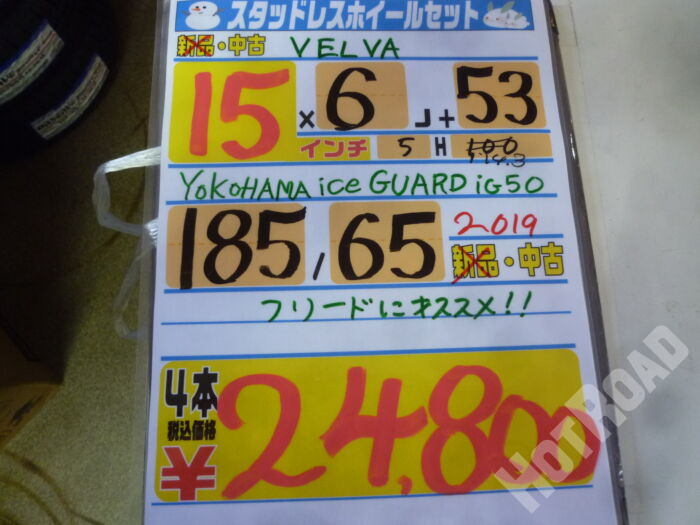 スタッドレスホイールセット
新品・中古 VELVA
15 × 6 J+ 53
インチ 5 H 100
114.3
YOKOHAMA ice GUARD iG50
185/65 2019
新品・中古
フリードにオススメ!!
4本
税込価格
¥24,800
HOT ROAD